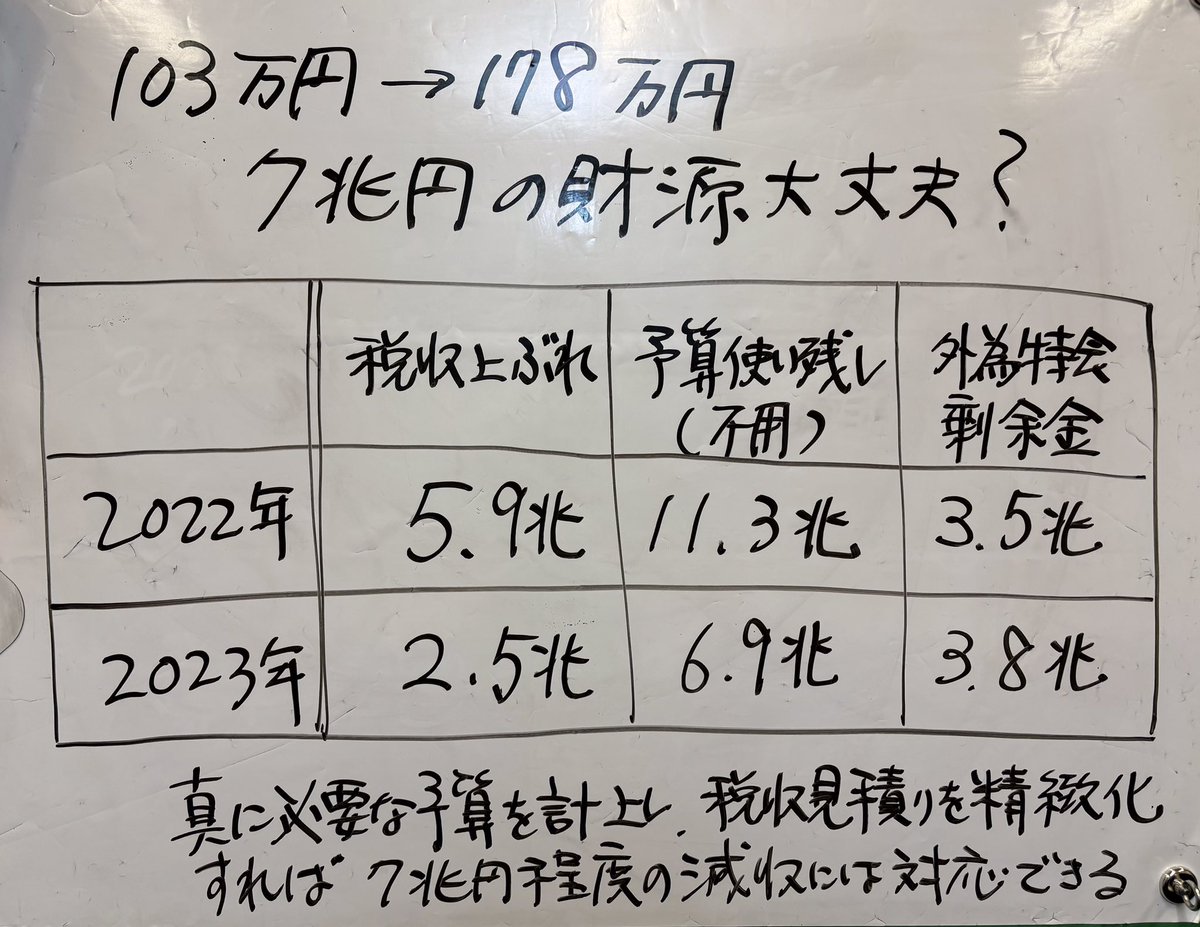 103万円→178万円
7兆円の財源大丈夫?
税収上ぶれ 予算使い残し(不用) 外為特会剰余金
2022年 5.9兆 11.3兆 3.5兆
2023年 2.5兆 6.9兆 3.8兆
真に必要な予算を計上し、税収見積りを精緻化
すれば7兆円程度の減収には対応できる